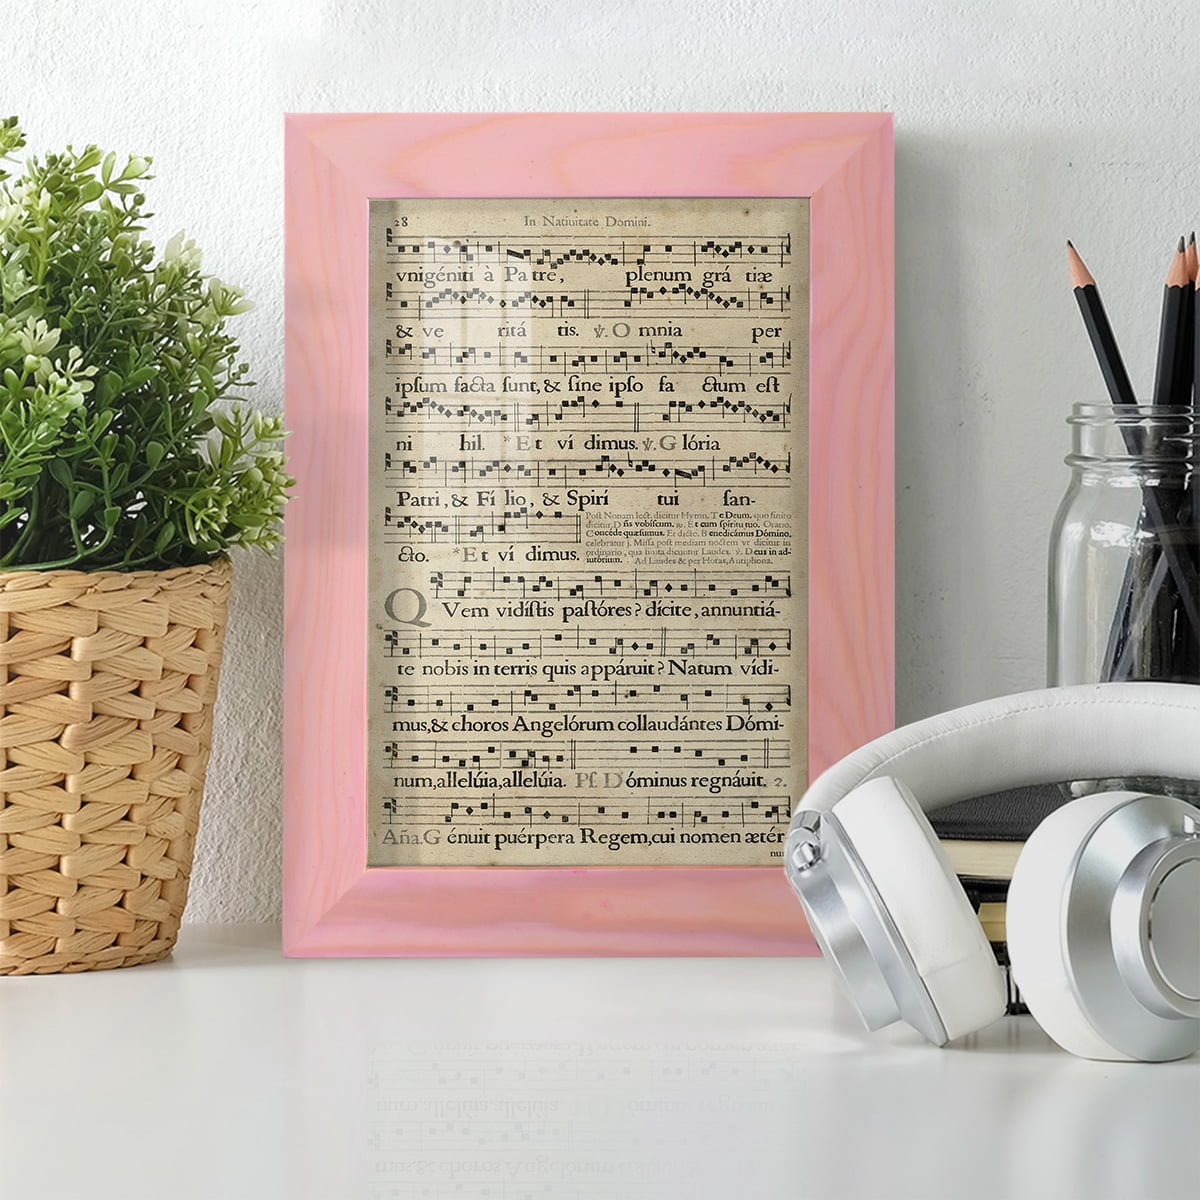 28 In Natiuitate Domini.
vnigéniti à Pa tre, plenum grá tiæ
& ve ritá tis. ℣. O mnia per
ipſum facta ſunt, & ſine ipſo fa ctum eſt
ni hil. * Et ví dimus. ℣. G lória
Patri, & Fí lio, & Spirí tui ſan-
cto. * Et ví dimus.
Poſt Nonam lect. dicitur Hymn. Te Deum. quo finito
dicitur, D ñs vobíſcum. ℟. Et cum ſpíritu tuo. Oratio.
Concéde quæſumus. Et dicto. Benedicámus Dómino.
celebratur j. Miſſa poſt mediam noctem vt dicitur in
ordinario, qua finita dicuntur Laudes. ℣. Deus in ad-
iutórium. Ad Laudes & per Horas, Antiphona.
QVem vidíſtis paſtóres? dícite, annuntiá-
te nobis in terris quis appáruit? Natum vídi-
mus, & choros Angelórum collaudántes Dómi-
num, allelúia, allelúia. Pſ. Dóminus regnáuit. 2.
Aña. G énuit puérpera Regem, cui nomen ætér
num